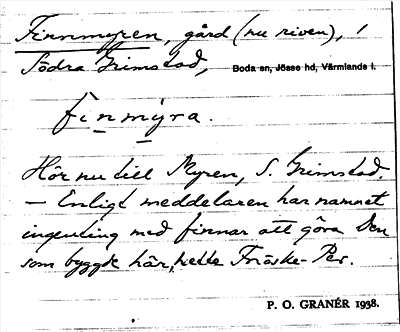 Finnmyren, gård (nu riven), i
Södra Grimstad, Boda sn, Jösse hd, Värmlands l.
finmýra.
Hör nu till Myren, S. Grimstad.
— Enligt meddelaren har namnet
ingenting med finnar att göra. Den
som byggde här, hette Fräske-Per.
P. O. GRANÉR 1938.